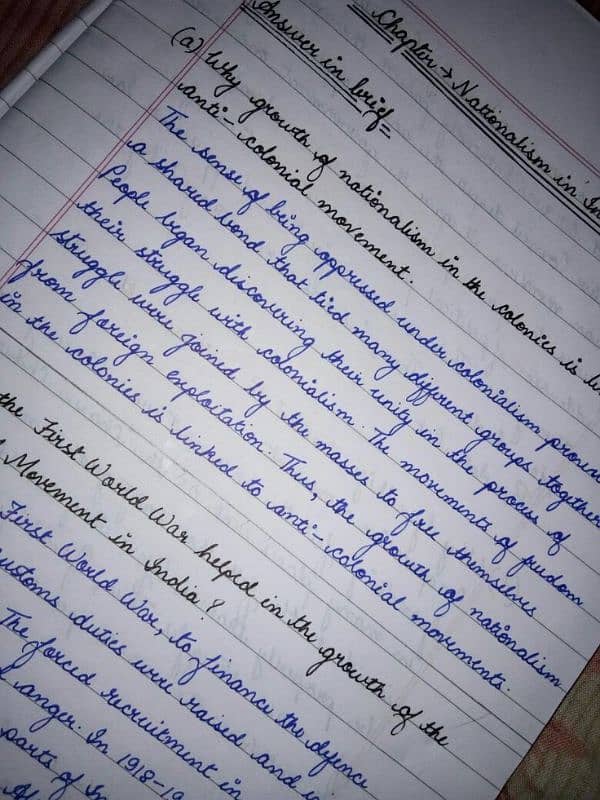 Chapter → Nationalism in In
Answer in brief
(a) Why growth of nationalism in the colonies is lin
anti-colonial movement.
The sense of being oppressed under colonialism provid
a shared bond that tied many different groups together
People began discovering their unity in the process of
their struggle with colonialism. The movements of freedom
struggle were joined by the masses to free themselves
from foreign exploitation. Thus, the growth of nationalism
in the colonies is linked to anti-colonial movements.
the First World War helped in the growth of the
Movement in India?
First World War, to finance the defence
customs duties were raised and
The forced recruitment in
anger. In 1918-19
parts of In